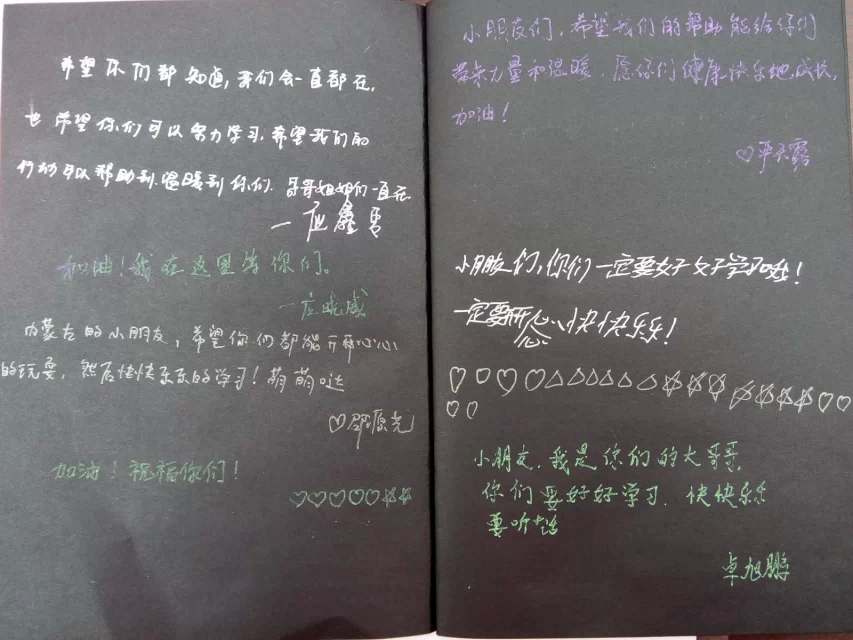 希望你们都知道,我们会一直都在,
也希望你们可以努力学习,希望我们的
行动可以帮助到,温暖到你们,哥哥姐姐们一直在
一应鑫
加油!我在这里等你们。
一应晓威
内蒙古的小朋友,希望你们都能开开心心
的玩耍,然后快快乐乐的学习!萌萌哒
♡邵源光
加油!祝福你们!
♡♡♡♡♡☆☆
小朋友们,希望我们的帮助能给你们
带来力量和温暖,愿你们健康快乐地成长,
加油!
♡严天露
小朋友们,你们一定要好好学习哦!
一定要开心、快快乐乐!
小朋友,我是你们的大哥哥,
你们要好好学习,快快乐乐
要听话
卓旭鹏